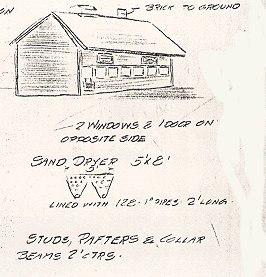 ON
BRICK TO GROUND
2 WINDOWS & 1 DOOR ON
OPPOSITE SIDE
SAND DRYER 5'X8'
5'
LINED WITH 128- 1" PIPES 2' LONG
STUDS, RAFTERS & COLLAR
BEAMS 2' CTRS.